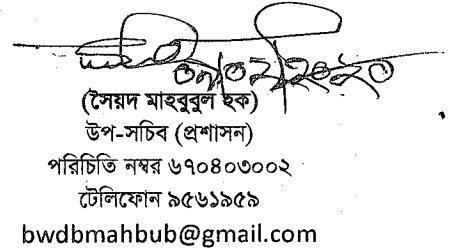 (সৈয়দ মাহবুবুল হক)
উপ-সচিব (প্রশাসন)
পরিচিতি নম্বর ৬৭০৪০৩০০২
টেলিফোন ৯৫৬১৯৫৯
bwdbmahbub@gmail.com